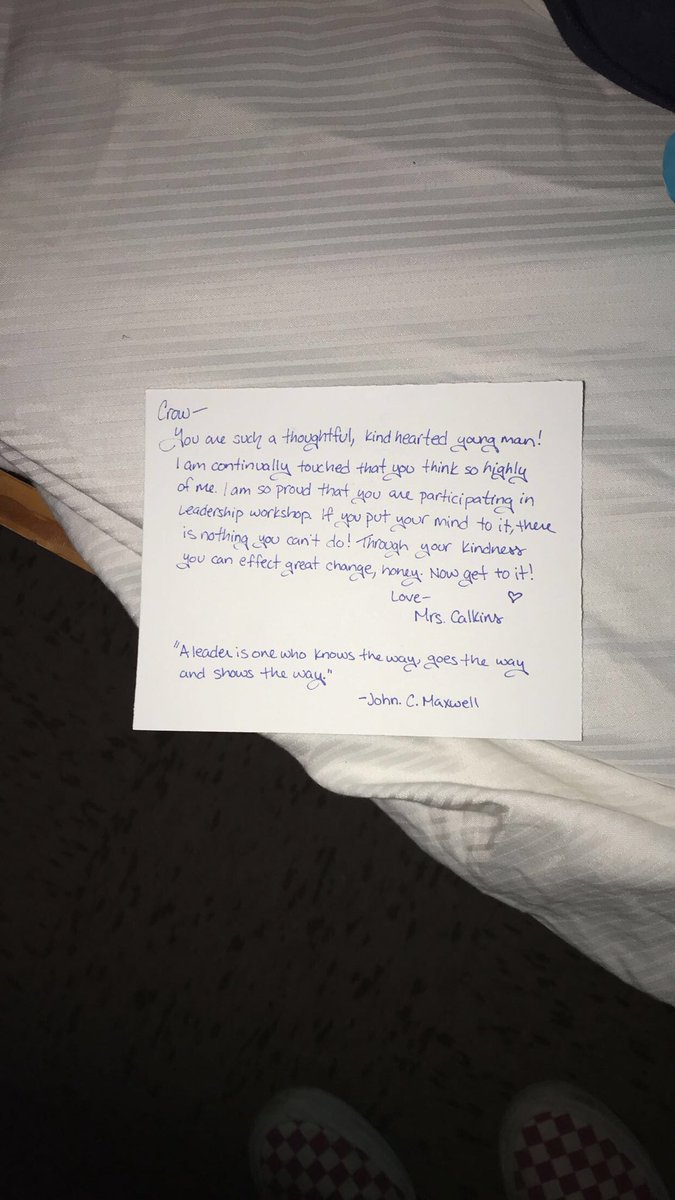 Crow-
You are such a thoughtful, kind hearted young man!
I am continually touched that you think so highly
of me. I am so proud that you are participating in
Leadership workshop. If you put your mind to it, there
is nothing you can't do! Through your kindness
you can effect great change, honey. Now get to it!
Love- ♡
Mrs. Calkins
"A leader is one who knows the way, goes the way
and shows the way."
-John. C. Maxwell